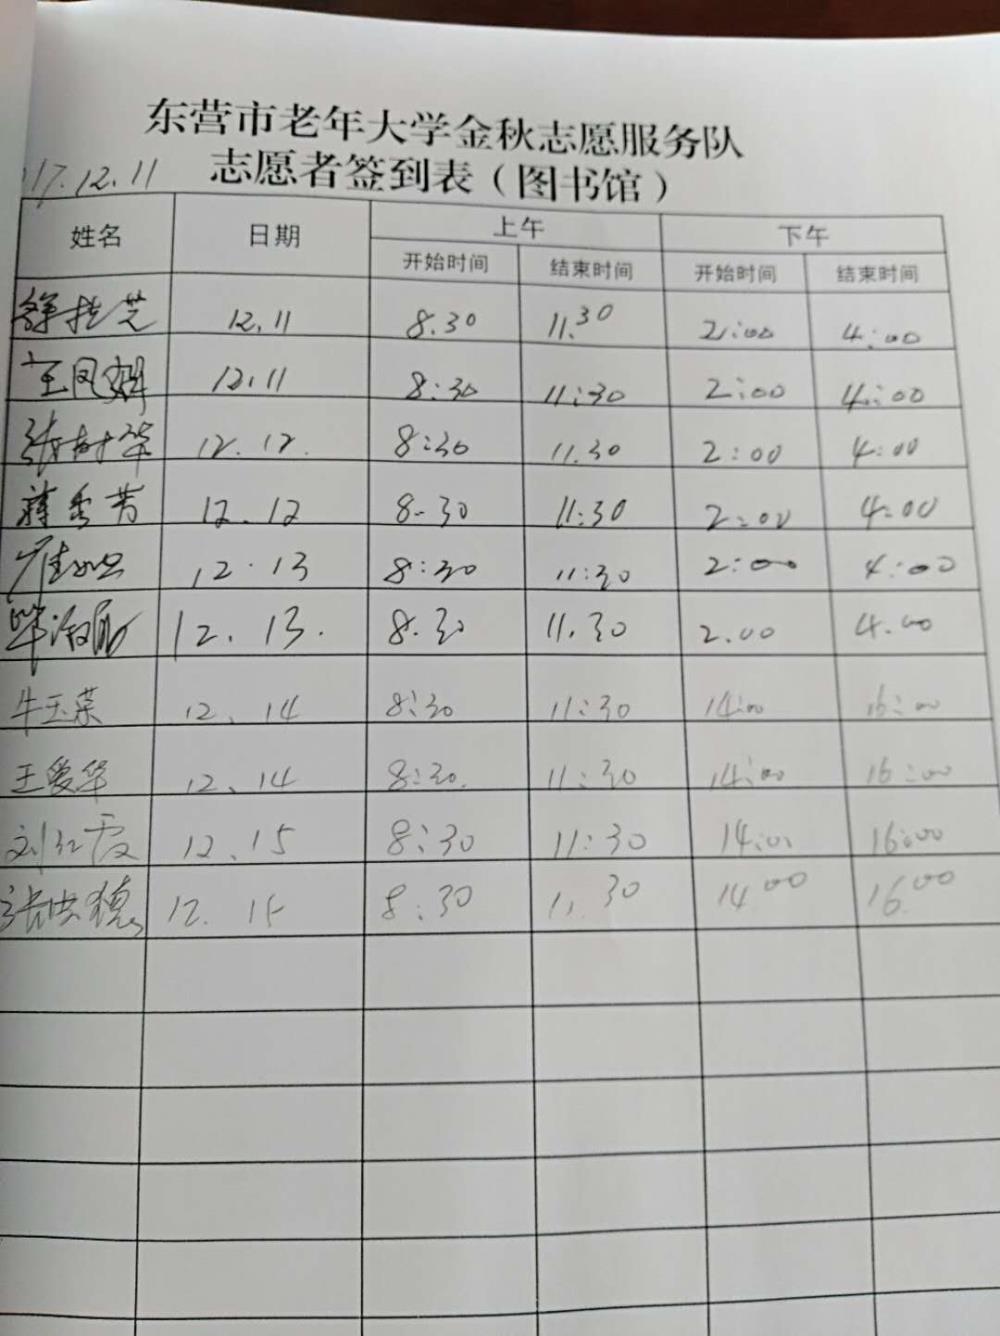 东营市老年大学金秋志愿服务队
志愿者签到表（图书馆）
17.12.11
姓名 日期 上午 下午
开始时间 结束时间 开始时间 结束时间
徐桂芝 12.11 8.30 11.30 2:00 4:00
王凤 12.11 8:30 11:30 2:00 4:00
张树华 12.12. 8:30 11.30 2:00 4:00
蒋秀芳 12.12 8.30 11:30 2:00 4:00
崔 12.13 8:30 11:30 2:00 4:00
毕淑 12.13. 8.30 11.30 2.00 4.00
牛玉荣 12.14 8:30 11:30 14:00 16:00
王爱华 12.14 8:30. 11:30 14:00 16:00
刘红霞 12.15 8:30 11:30 14:00 16:00
张洪德 12.15 8:30 11.30 14 00 16.00